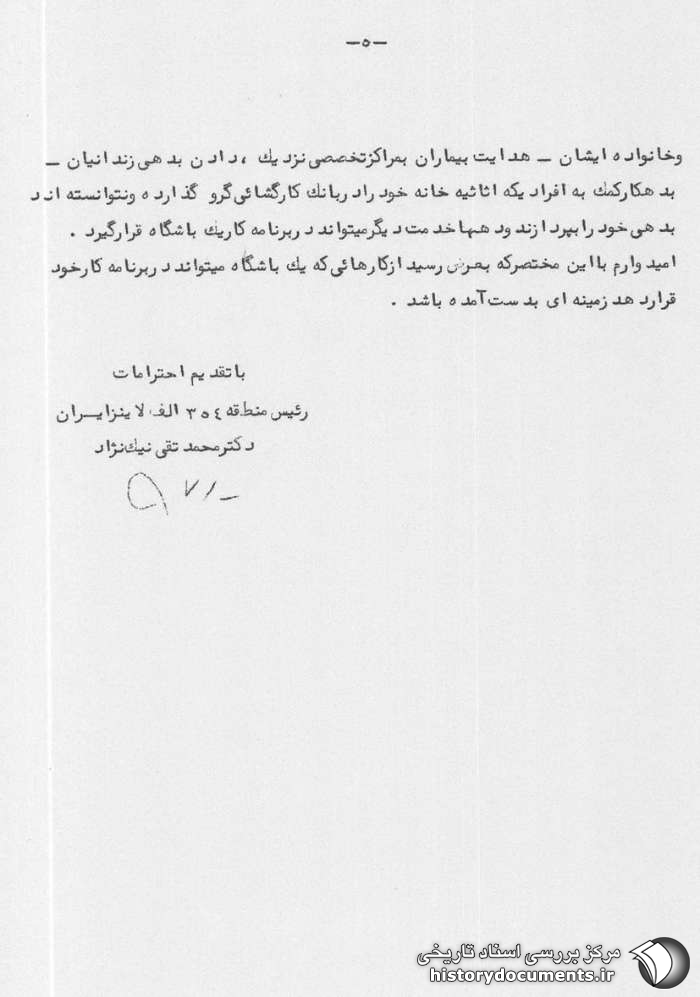 -۵-
وخانواده ایشان - هدایت بیماران بمراکزتخصصی نزدیك ، دادن بدهی زندانیان -
بدهکارکمك به افرادیکه اثاثیه خانه خودرادربانك کارگشائی گرو گذارده ونتوانسته اند
بدهی خودرابپردازندودهها خدمت دیگرمیتوانددربرنامه کاریك باشگاه قرارگیرد .
امیدوارم بااین مختصرکه بعرض رسیدازکارهائی که یك باشگاه میتوانددربرنامه کارخود
قراردهدزمینه ای بدست آمده باشد .
باتقدیم احترامات
رئیس منطقه ۳۵٤ الف لاینزایران
دکترمحمدتقی نیك نژاد
مرکز بررسی اسناد تاریخی
historydocuments.ir